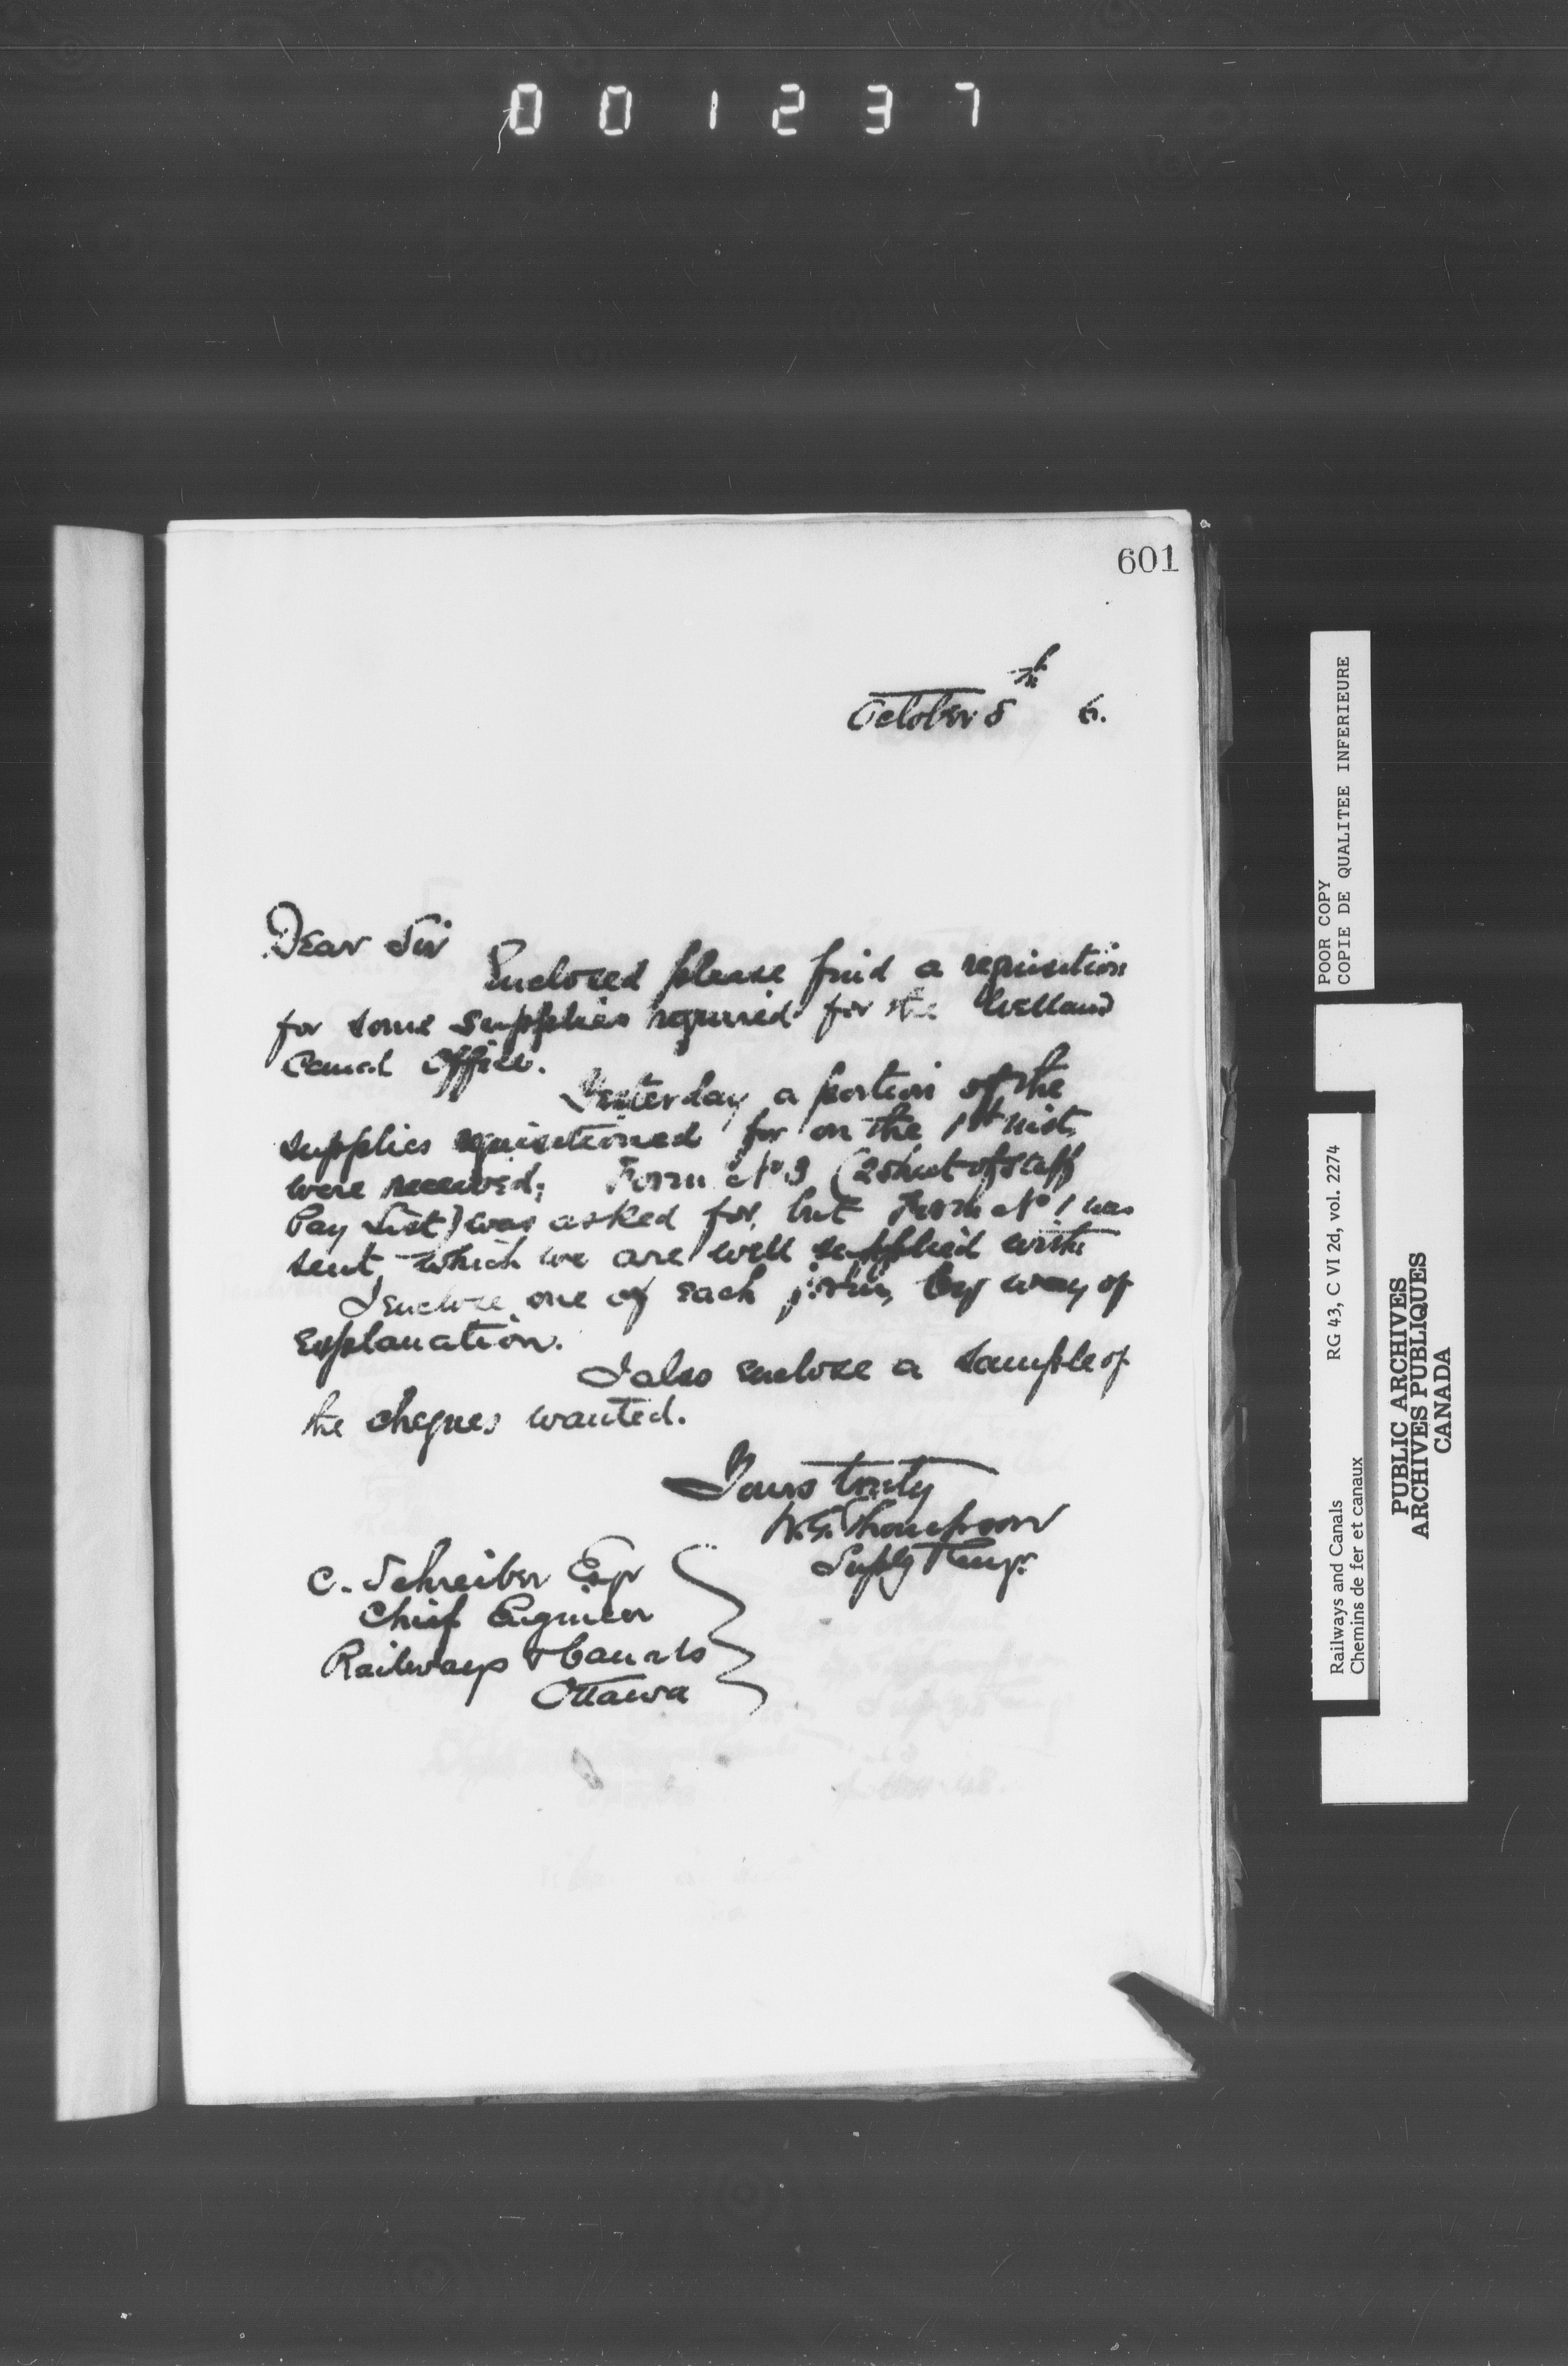 001237
601
October 8th 6.
Dear Sir
Enclosed please find a requisition
for some supplies required for the Welland
Canal Office.
Yesterday a portion of the
supplies requisitioned for on the 1st inst.
were received; Form No 3 (2 sheet of Staff
Pay List) was asked for, but Form No 1 was
sent, which we are well supplied with
I enclose one of each form, by way of
explanation.
I also enclose a sample of
the cheques wanted.
Yours truly
W.G. Thompson
Supty Engr.
C. Schreiber Esqr
Chief Engineer
Railways & Canals
Ottawa
POOR COPY
COPIE DE QUALITEE INFERIEURE
Railways and Canals RG 43, C VI 2d, vol. 2274
Chemins de fer et canaux
PUBLIC ARCHIVES
ARCHIVES PUBLIQUES
CANADA